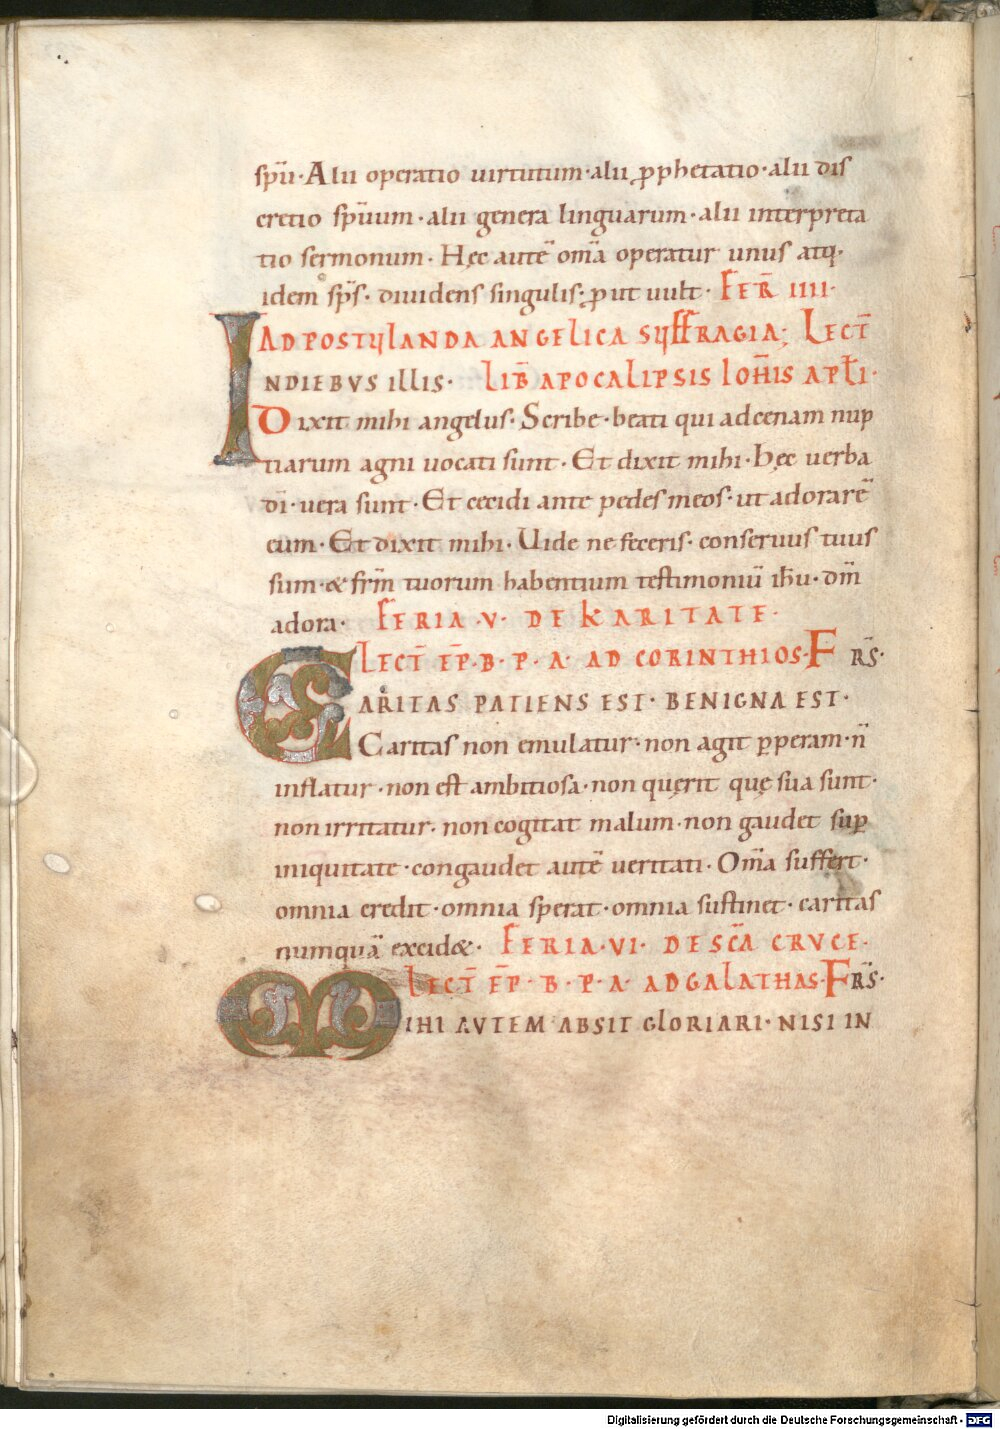 spū · Alii operatio uirtutum · alii ꝓphetatio · alii dis
cretio spūum · alii genera linguarum · alii interpreta
tio sermonum · Hęc autē om̄a operatur unus atq;
idem sp̄s · diuidens singulis ; ꝓut uult · FER̄ IIII ·
AD POSTULANDA ANGELICA SUFFRAGIA ; LECT̄
INDIEBUS ILLIS · LIB̄ APOCALIPSIS IOH̄IS APŁI ·
Dixit mihi angelus · Scribe · beati qui ad cenam nup
tiarum agni uocati sunt · Et dixit mihi · hęc uerba
dī · uera sunt · Et cecidi ante pedes meos · ut adorarē
eum · Et dixit mihi · Uide ne feceris · conseruus tuus
sum · & frm̄ tuorum habentium testimoniū ih̄u · dm̄
adora · FERIA · V · DE KARITATE ·
LECT̄ EP̄ · B · P · A · AD CORINTHIOS · FRS̄ ·
CARITAS PATIENS EST · BENIGNA EST ·
Caritas non emulatur · non agit ꝑperam · n̄
inflatur · non est ambitiosa · non querit quę sua sunt ·
non irritatur · non cogitat malum · non gaudet suꝑ
iniquitate · congaudet autē ueritati · Om̄a suffert ·
omnia credit · omnia sperat · omnia sustinet · caritas
numquā excid& · FERIA · VI · DE SCĀ CRUCE ·
LECT̄ EP̄ · B · P · A · AD GALATHAS · FRS̄ ·
MIHI AUTEM ABSIT GLORIARI · NISI IN
Digitalisierung gefördert durch die Deutsche Forschungsgemeinschaft - DFG